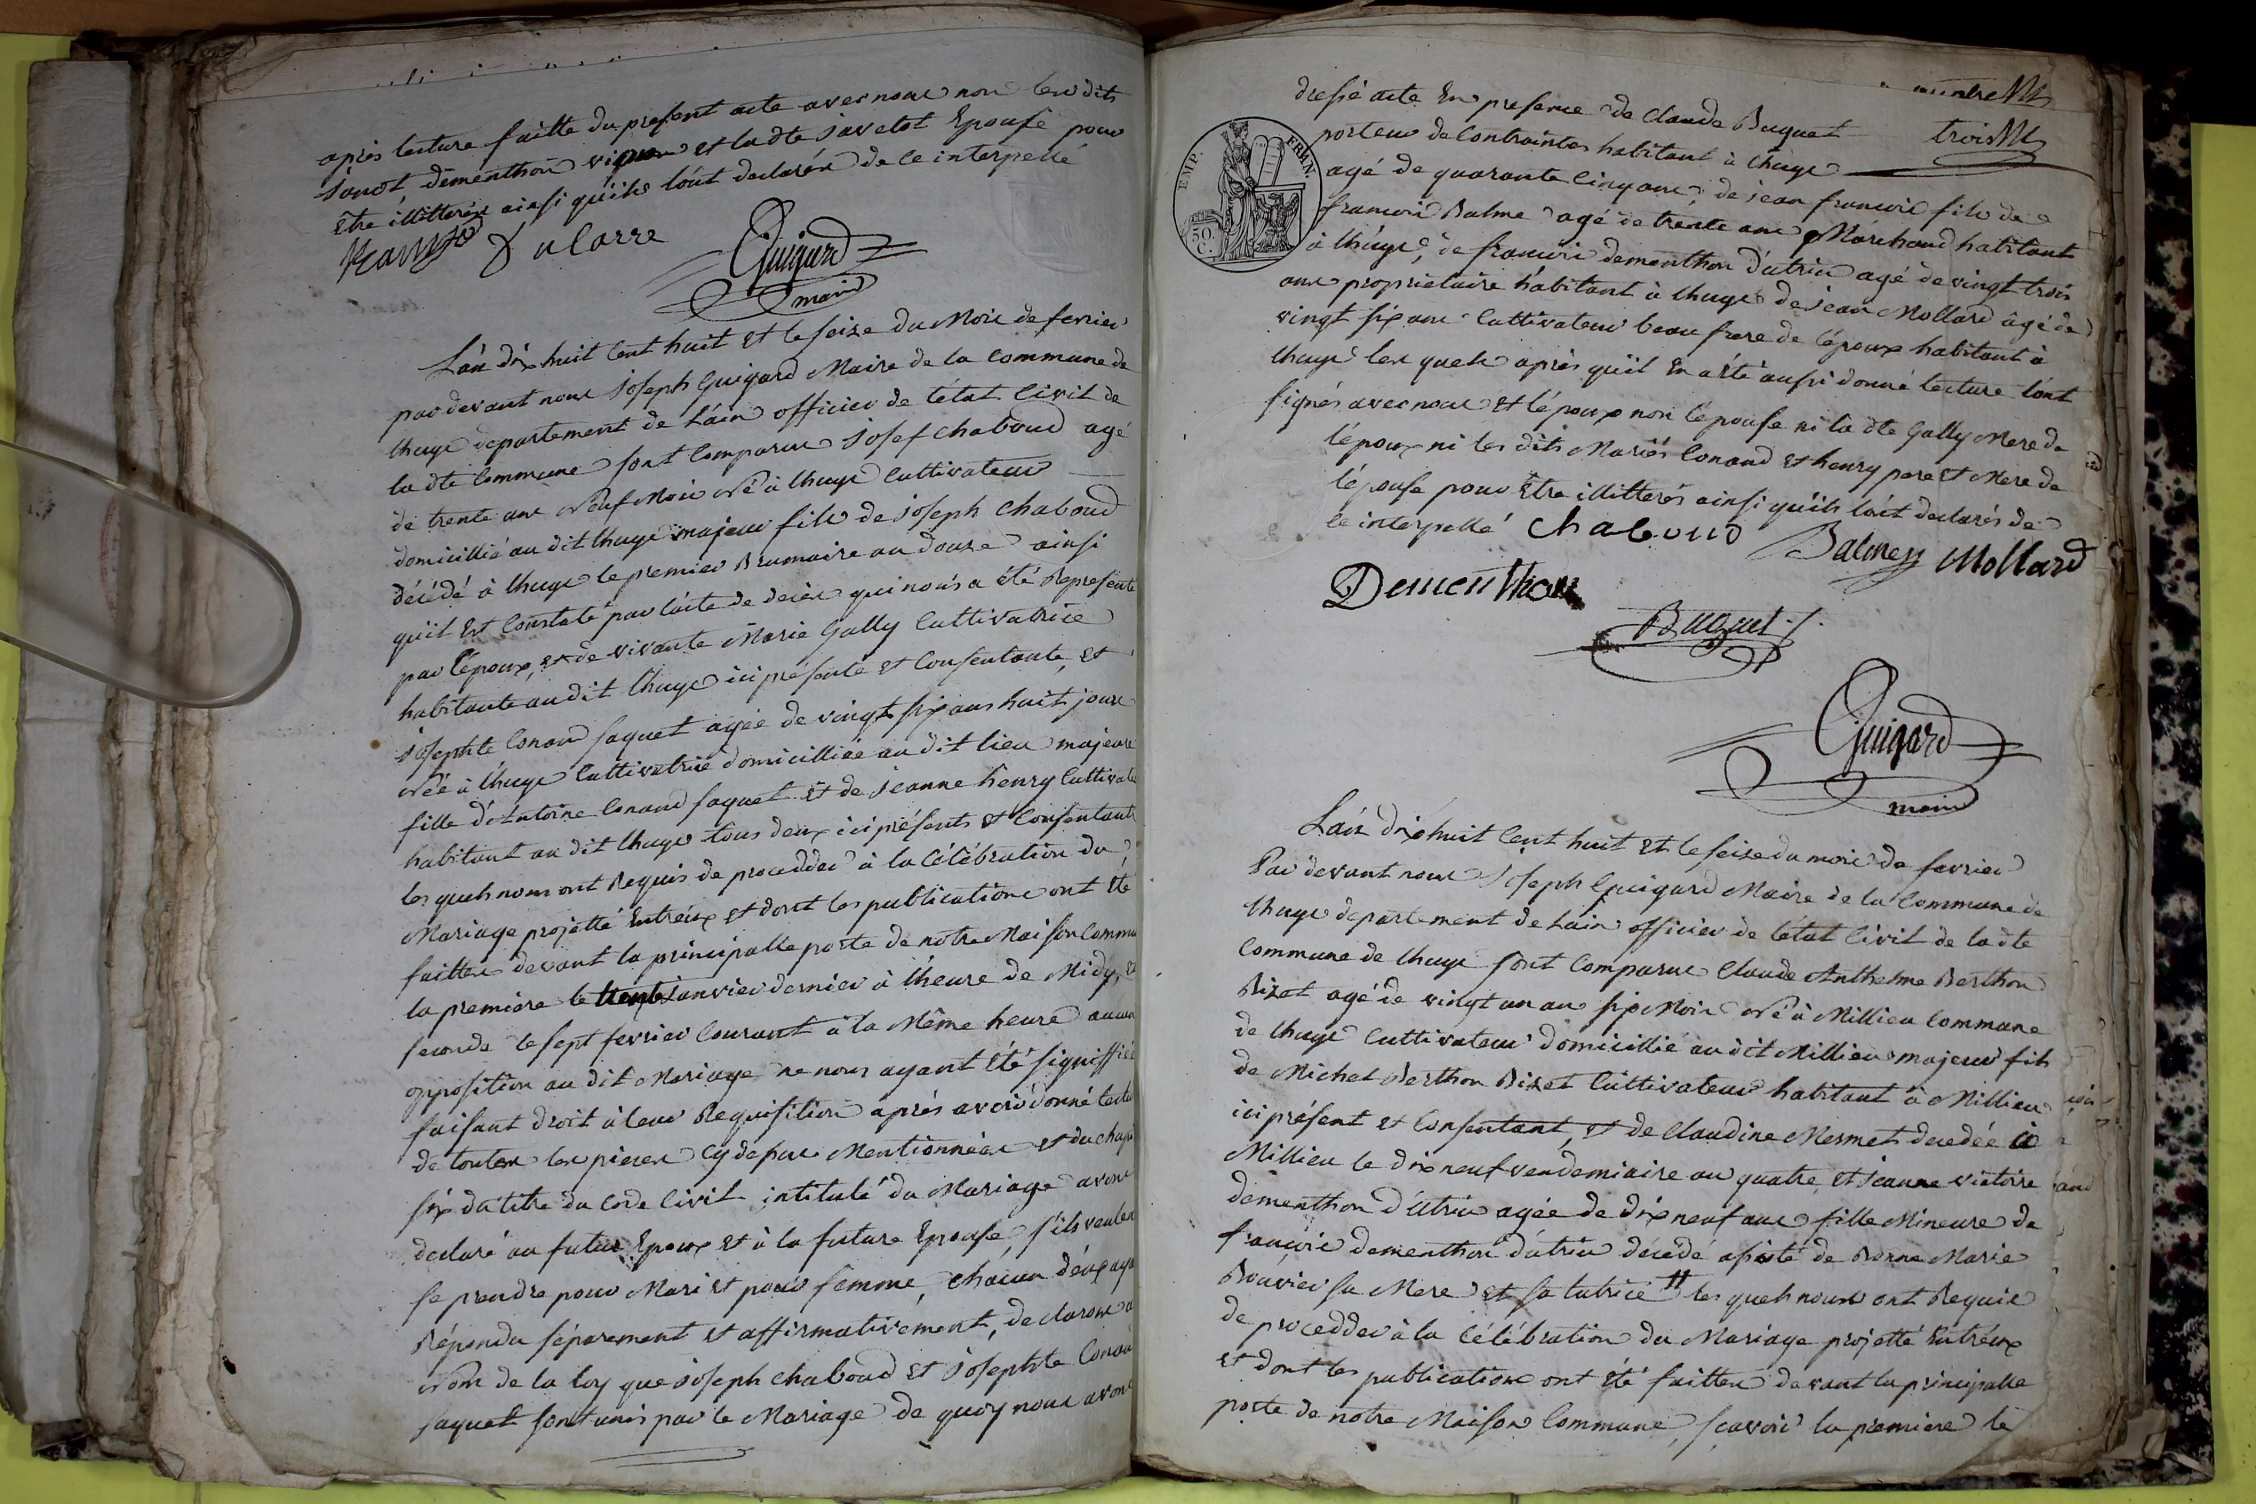 après lecture faitte du présent acte avec nous non les dits
Janot dementhon vi et la dte Javelot Epouse pour
être illitterés ainsi qu'ils l'ont declarés de ce interpellé
Dalarre
Guigard
maire
L'an dix huit cent huit et le seize du Mois de fevrier
par devant nous Joseph Guigard Maire de la commune de
lhuys departement de L'ain officier de l'état Civil de
la dte Commune sont Comparus Josef chaboud agé
de trente ans Neuf Mois Né à lhuys Cultivateur
domicillié au dit lhuys majeur fils de Joseph Chaboud
décédé à lhuys le premier Brumaire an douze ainsi
qu'il Est Constaté par l'acte de decès qui nous a été Representé
par l'époux, et de vivante Marie Gally Cultivatrice
habitante au dit lhuys ici présente et Consentante, et
Josephte Conand Jaquet agée de vingt six ans huit jours
Née à lhuys Cultivatrice domicilliée au dit lieu majeure
fille d'Antoine Conand Jaquet et de Jeanne henry Cultivate
habitant au dit lhuys tous deux ici présents et Consentants
les quels nous ont Requis de procedder à la Célébration du
Mariage projetté Entréux et dont les publications ont été
faittes devant la principalle porte de notre Maison Commu
la premiere le trente Janvier dernier à l'heure de Midy, et
seconde le sept fevrier Courant à la Même heure aucun
opposition au dit Mariage ne nous ayant été signiffiée
faisant droit à leur Requisition après avoir donné lectu
de toutes les pieces Cy dessus Mentionnées et du chapi
six du titre du Code Civil intitulé du Mariage avons
declaré au futur Epoux et à la future Epouse s'ils veulen
se prendre pour Mari et pour femme, chacun d'eux aya
Répondu séparement et affirmativement, declarons a
Nom de la loy que Joseph chaboud et Josephte Conan
Jaquet sont unis par le Mariage de quoy nous avons
trois
dressé acte En presence de Claude Buguet
porteur de Contraintes habitant à lhuys
agé de quarante Cinq ans, de jean francois fils de
francois Balme agé de trente ans Marchand habitant
à lhuys, de francois dementhon d'utrin agé de vingt trois
ans proprietaire habitant à lhuys de jean Mollard âgé de
vingt six ans Cultivateur beau frere de l'époux habitant à
lhuys les quels après qu'il En a été aussi donné lecture l'ont
signés avec nous et l'époux non l'épouse ni la dte Gally Mere de
l'époux ni les dits Mariés Conand et henry pere et Mere de
l'épouse pour être illitterés ainsi qu'ils l'ont declarés de
ce interpellé Chaboud Balmey Mollard
Dementhon
Buguet
Guigard
maire
EMP. FRAN.
50 C.
L'an dixhuit Cent huit et le seize du mois de fevrier
Par devant nous Joseph Guigard Maire de la Commune de
lhuys departement de Lain officier de l'état Civil de la dte
Commune de lhuys sont Comparus Claude Anthelme Berthon
Bizet agé de vingt un an six Mois Né à Millieu Commune
de lhuys Cultivateur domicillié au dit Millieu majeur fils
de Michel Berthon Bizet Cultivateur habitant à Millieu
ici présent et Consentant, et de Claudine Mermet decedée à
Millieu le dix neuf vendemiaire an quatre, et Jeanne victoire
dementhon d'utrin agée de dix neuf ans fille Mineure de
francois dementhon d'utrin décédé assisté de Bonne Marie
Bouvier sa Mere et sa tutrice les quels nous ont Requis
de procedder à la Célébration du Mariage projetté Entréux
et dont les publications ont été faittes devant la principalle
porte de notre Maison Commune, sçavoir la premiere le